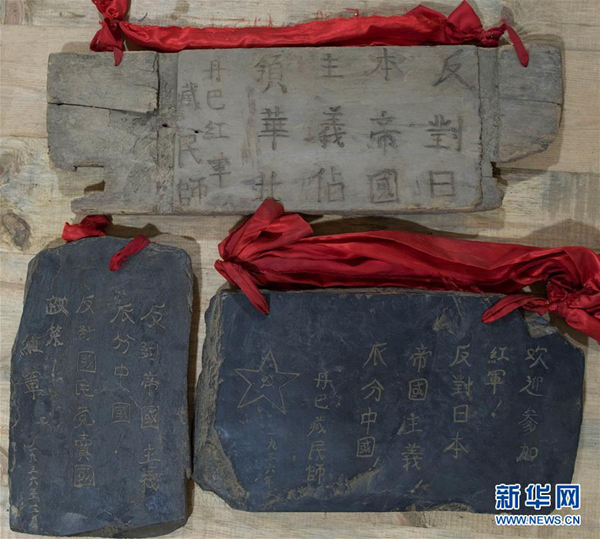 反對日
本帝國
主義佔
領華北
丹巴紅軍
藏民師
反對帝國主義
瓜分中國！
反對國民党賣國
政策！
紅軍
欢迎參加
紅軍！
反對日本
帝國主義！
瓜分中國！
丹巴藏民師
一九三六年
新华网
WWW.NEWS.CN